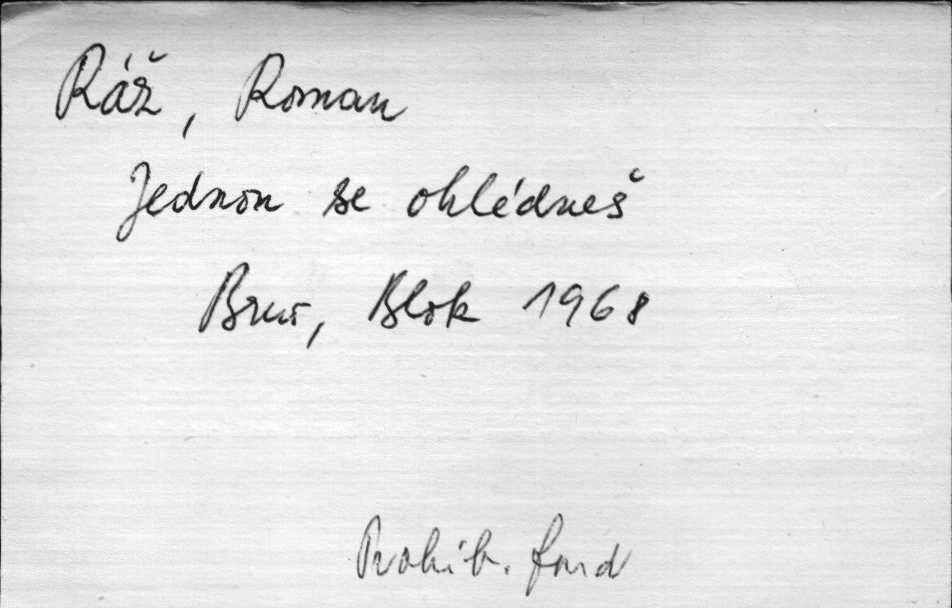 Ráž, Roman
Jednou se ohlédneš
Brno, Blok 1968
Prohib. fond